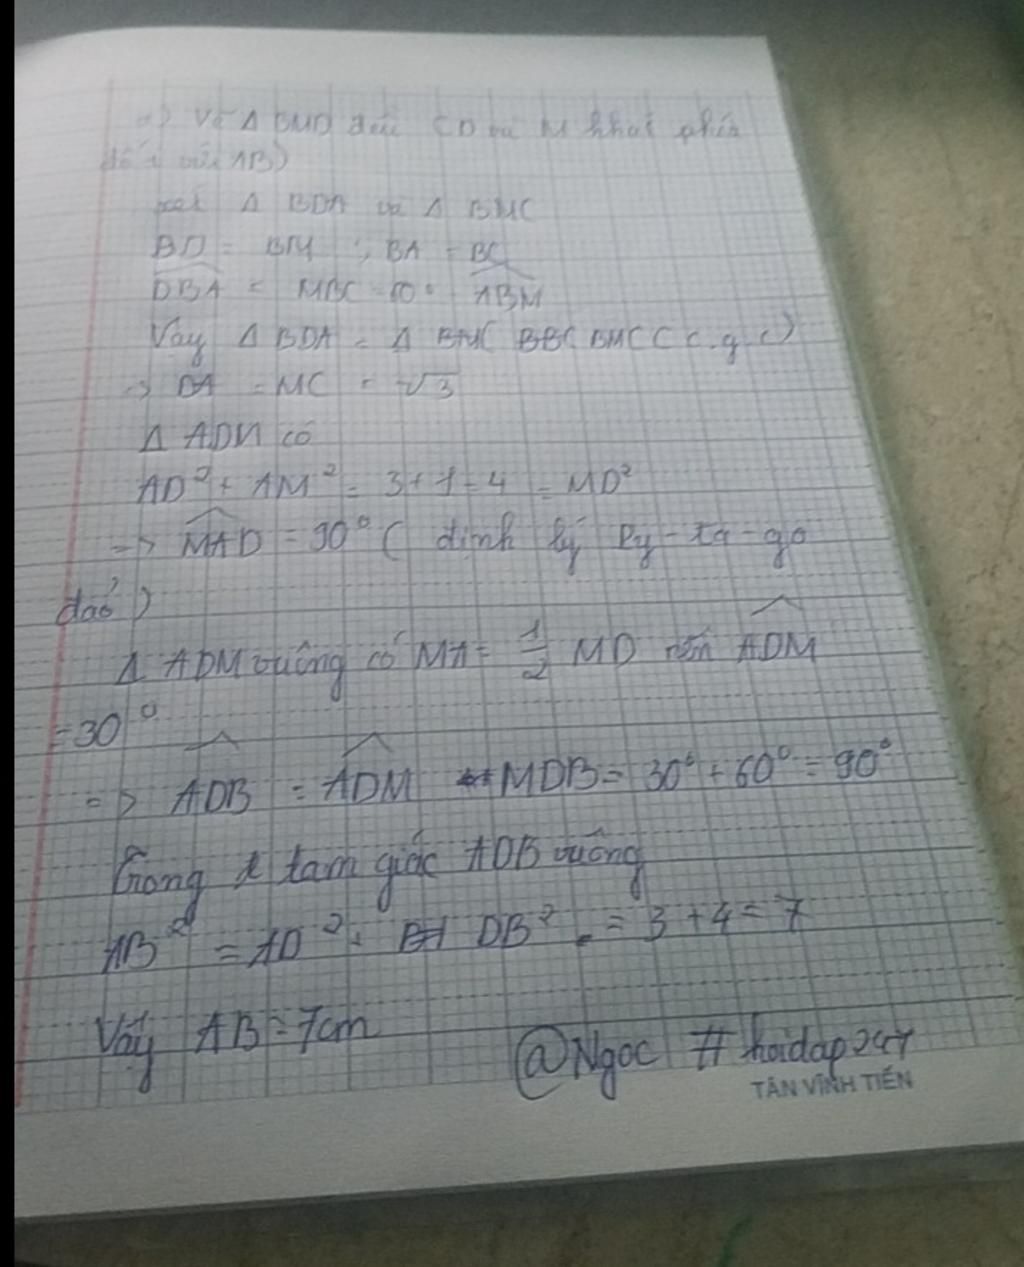 a) Vẽ Δ BMD đều (D và M khác phía
đối với AB)
xét Δ BDA và Δ BMC
BD = BM ; BA = BC
DBA = MBC = 60° - ABM
Vậy Δ BDA = Δ BMC (c.g.c)
=> DA = MC = √3
Δ ADM có
AD² + AM² = 3 + 1 = 4 = MD²
=> MAD = 90° ( định lý Py-ta-go
đảo )
Δ ADM vuông có MA = 1/2 MD nên ADM
= 30°
=> ADB = ADM + MDB = 30° + 60° = 90°
Trong tam giác ADB vuông
AB² = AD² + DB² = 3 + 4 = 7
Vậy AB = 7cm
@Ngoc # hoidap247
TÂN VĨNH TIẾN